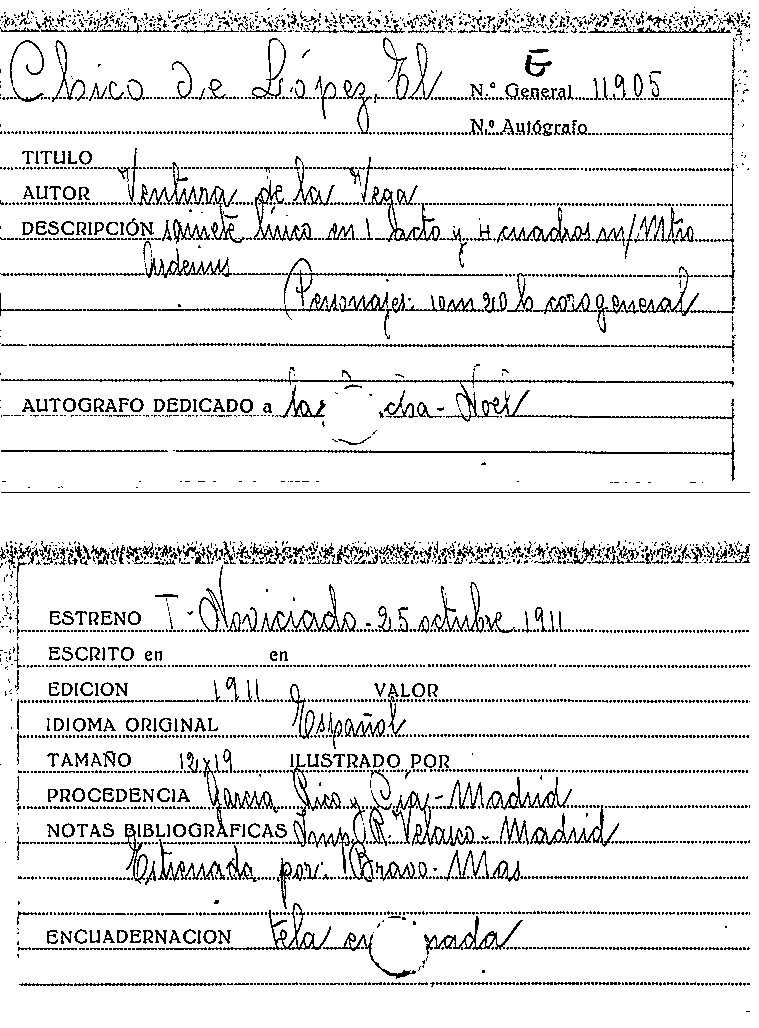 Chico de López, El
E
N.º General 11905
N.º Autógrafo
TITULO
AUTOR Ventura de la Vega
DESCRIPCIÓN sainete lírico en 1 acto y 4 cuadros m/Mtro
Arderius
Personajes: 10m 20 h coro general
AUTOGRAFO DEDICADO a
ESTRENO T- Noviciado - 25 octubre 1911
ESCRITO en en
EDICION 1911 VALOR
IDIOMA ORIGINAL Español
TAMAÑO 12x19 ILUSTRADO POR
PROCEDENCIA Garcia Rico y Cía - Madrid
NOTAS BIBLIOGRAFICAS Imp. R. Velasco - Madrid
Estrenada por: Bravo - Mas
ENCUADERNACION tela